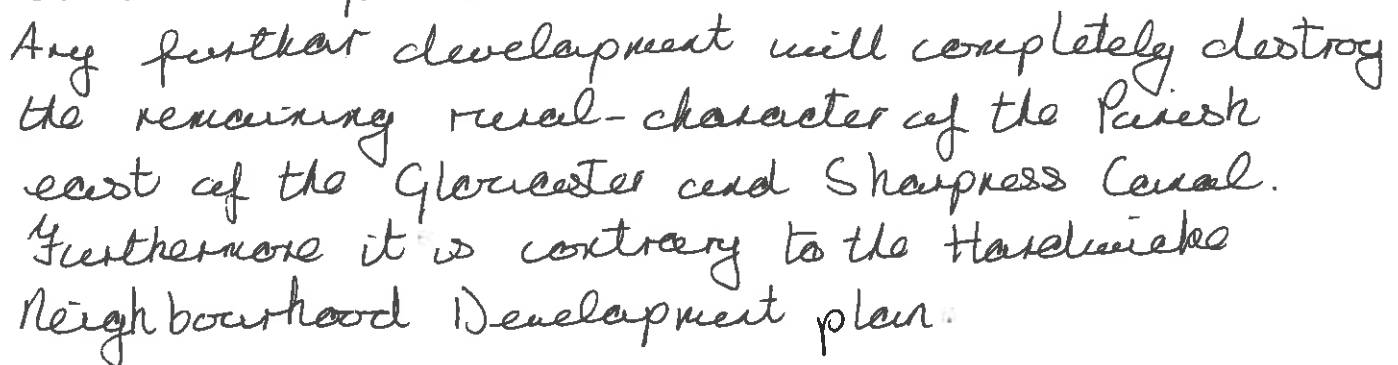 Any further development will completely destroy
the remaining rural-character of the Parish
east of the Gloucester and Sharpness Canal.
Furthermore it is contrary to the Hardwicke
Neighbourhood Development plan.